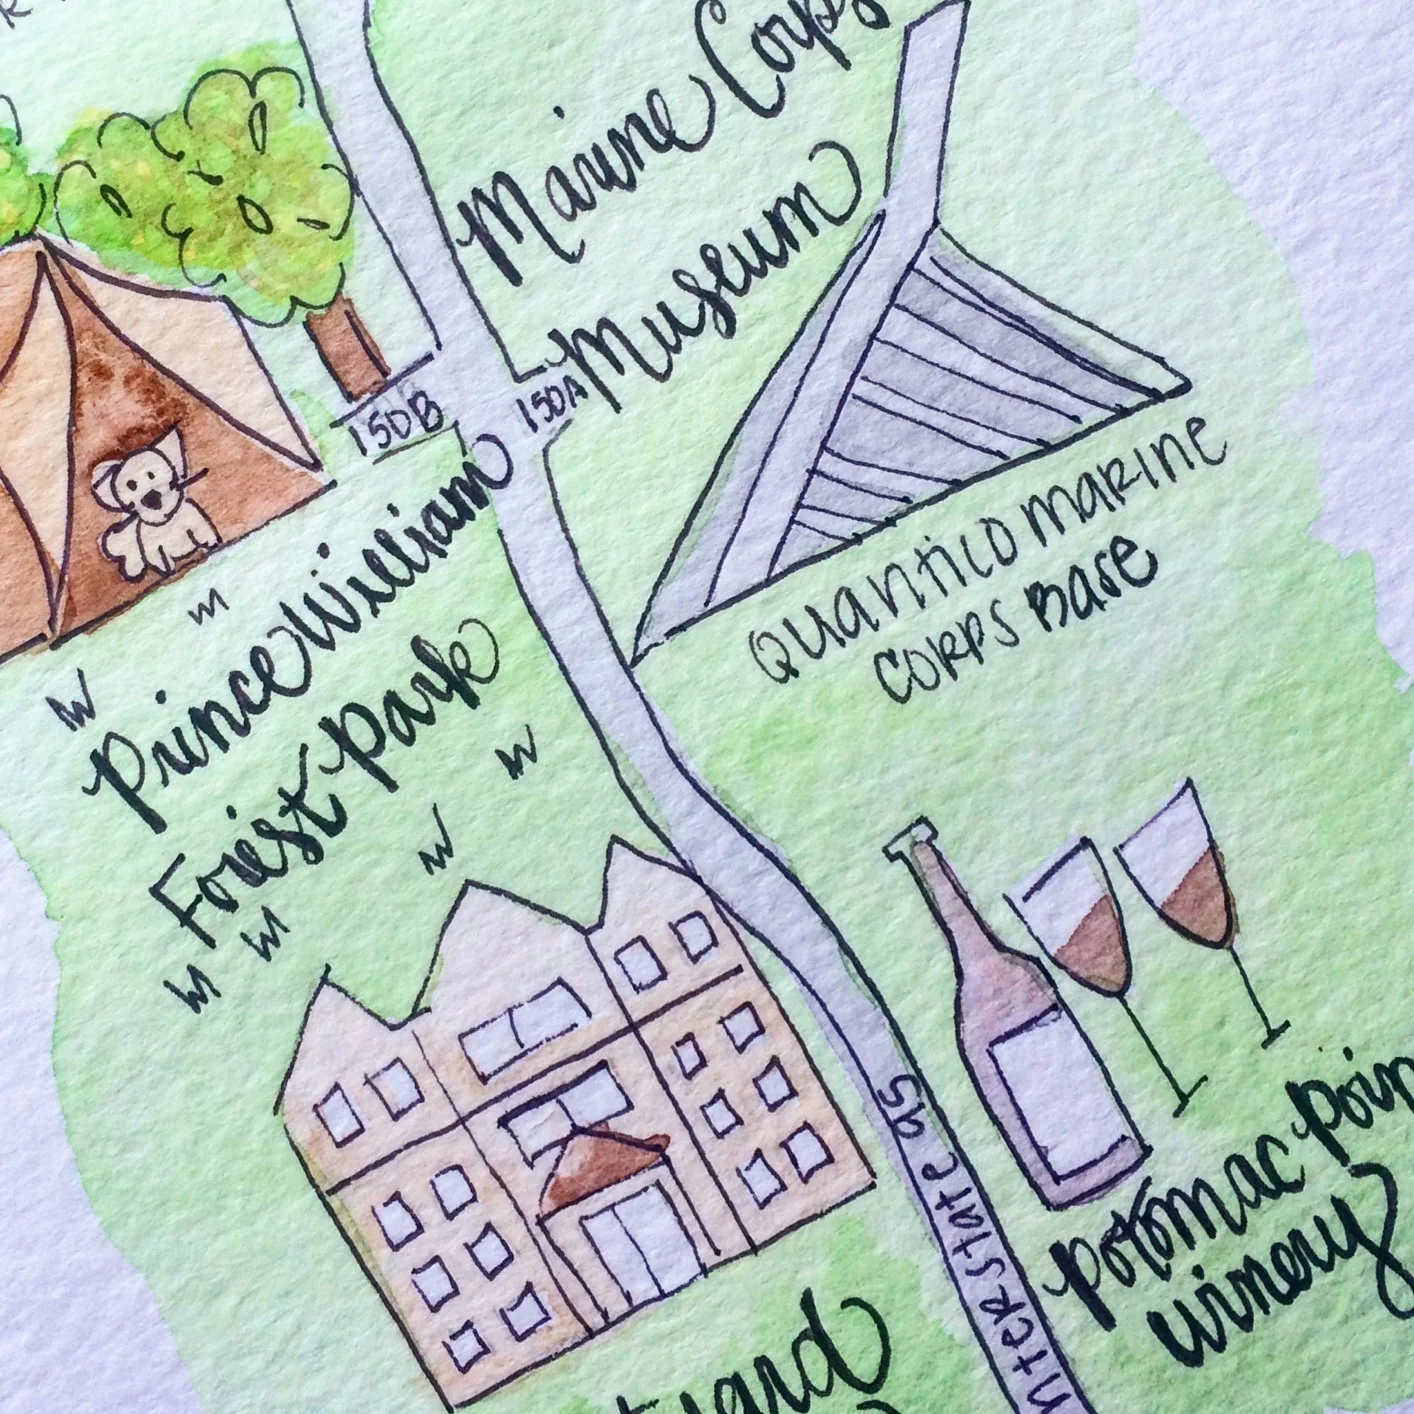 Marine Corps
Museum
150B
150A
Quantico Marine
Corps Base
Prince William
Forest Park
Potomac Poin
Winery
nterstate 95
tyard